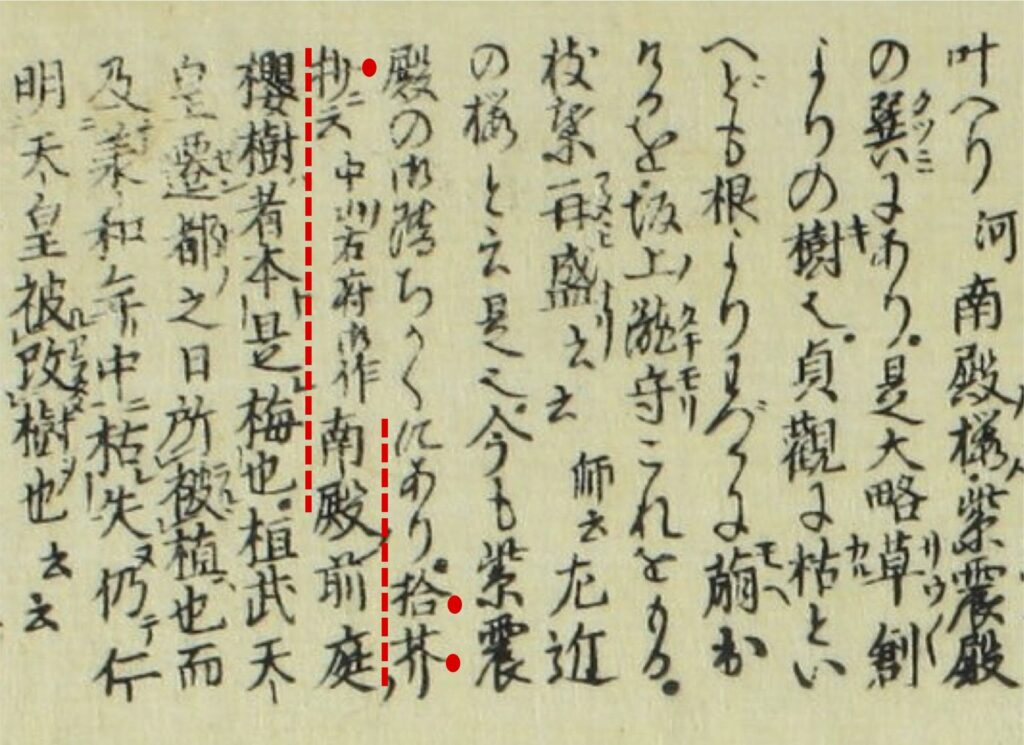 叶へり 河 南殿櫻、紫震殿ノ
の巽にあり。是大略草創
よりの樹也。貞觀に枯とい
へども根よりわづかに萠出
けるを坂上ノ瀧守これをもる。
枝葉再盛云云 師云左近
の櫻と云是也今も紫震
殿の御階ちかくにあり。拾芥
抄ニ云 中 右府御作 南殿前庭
櫻樹者本是梅也。桓武天
皇遷都之日所被植也而
及承和年中枯失仍仁
明天皇被改樹也云云